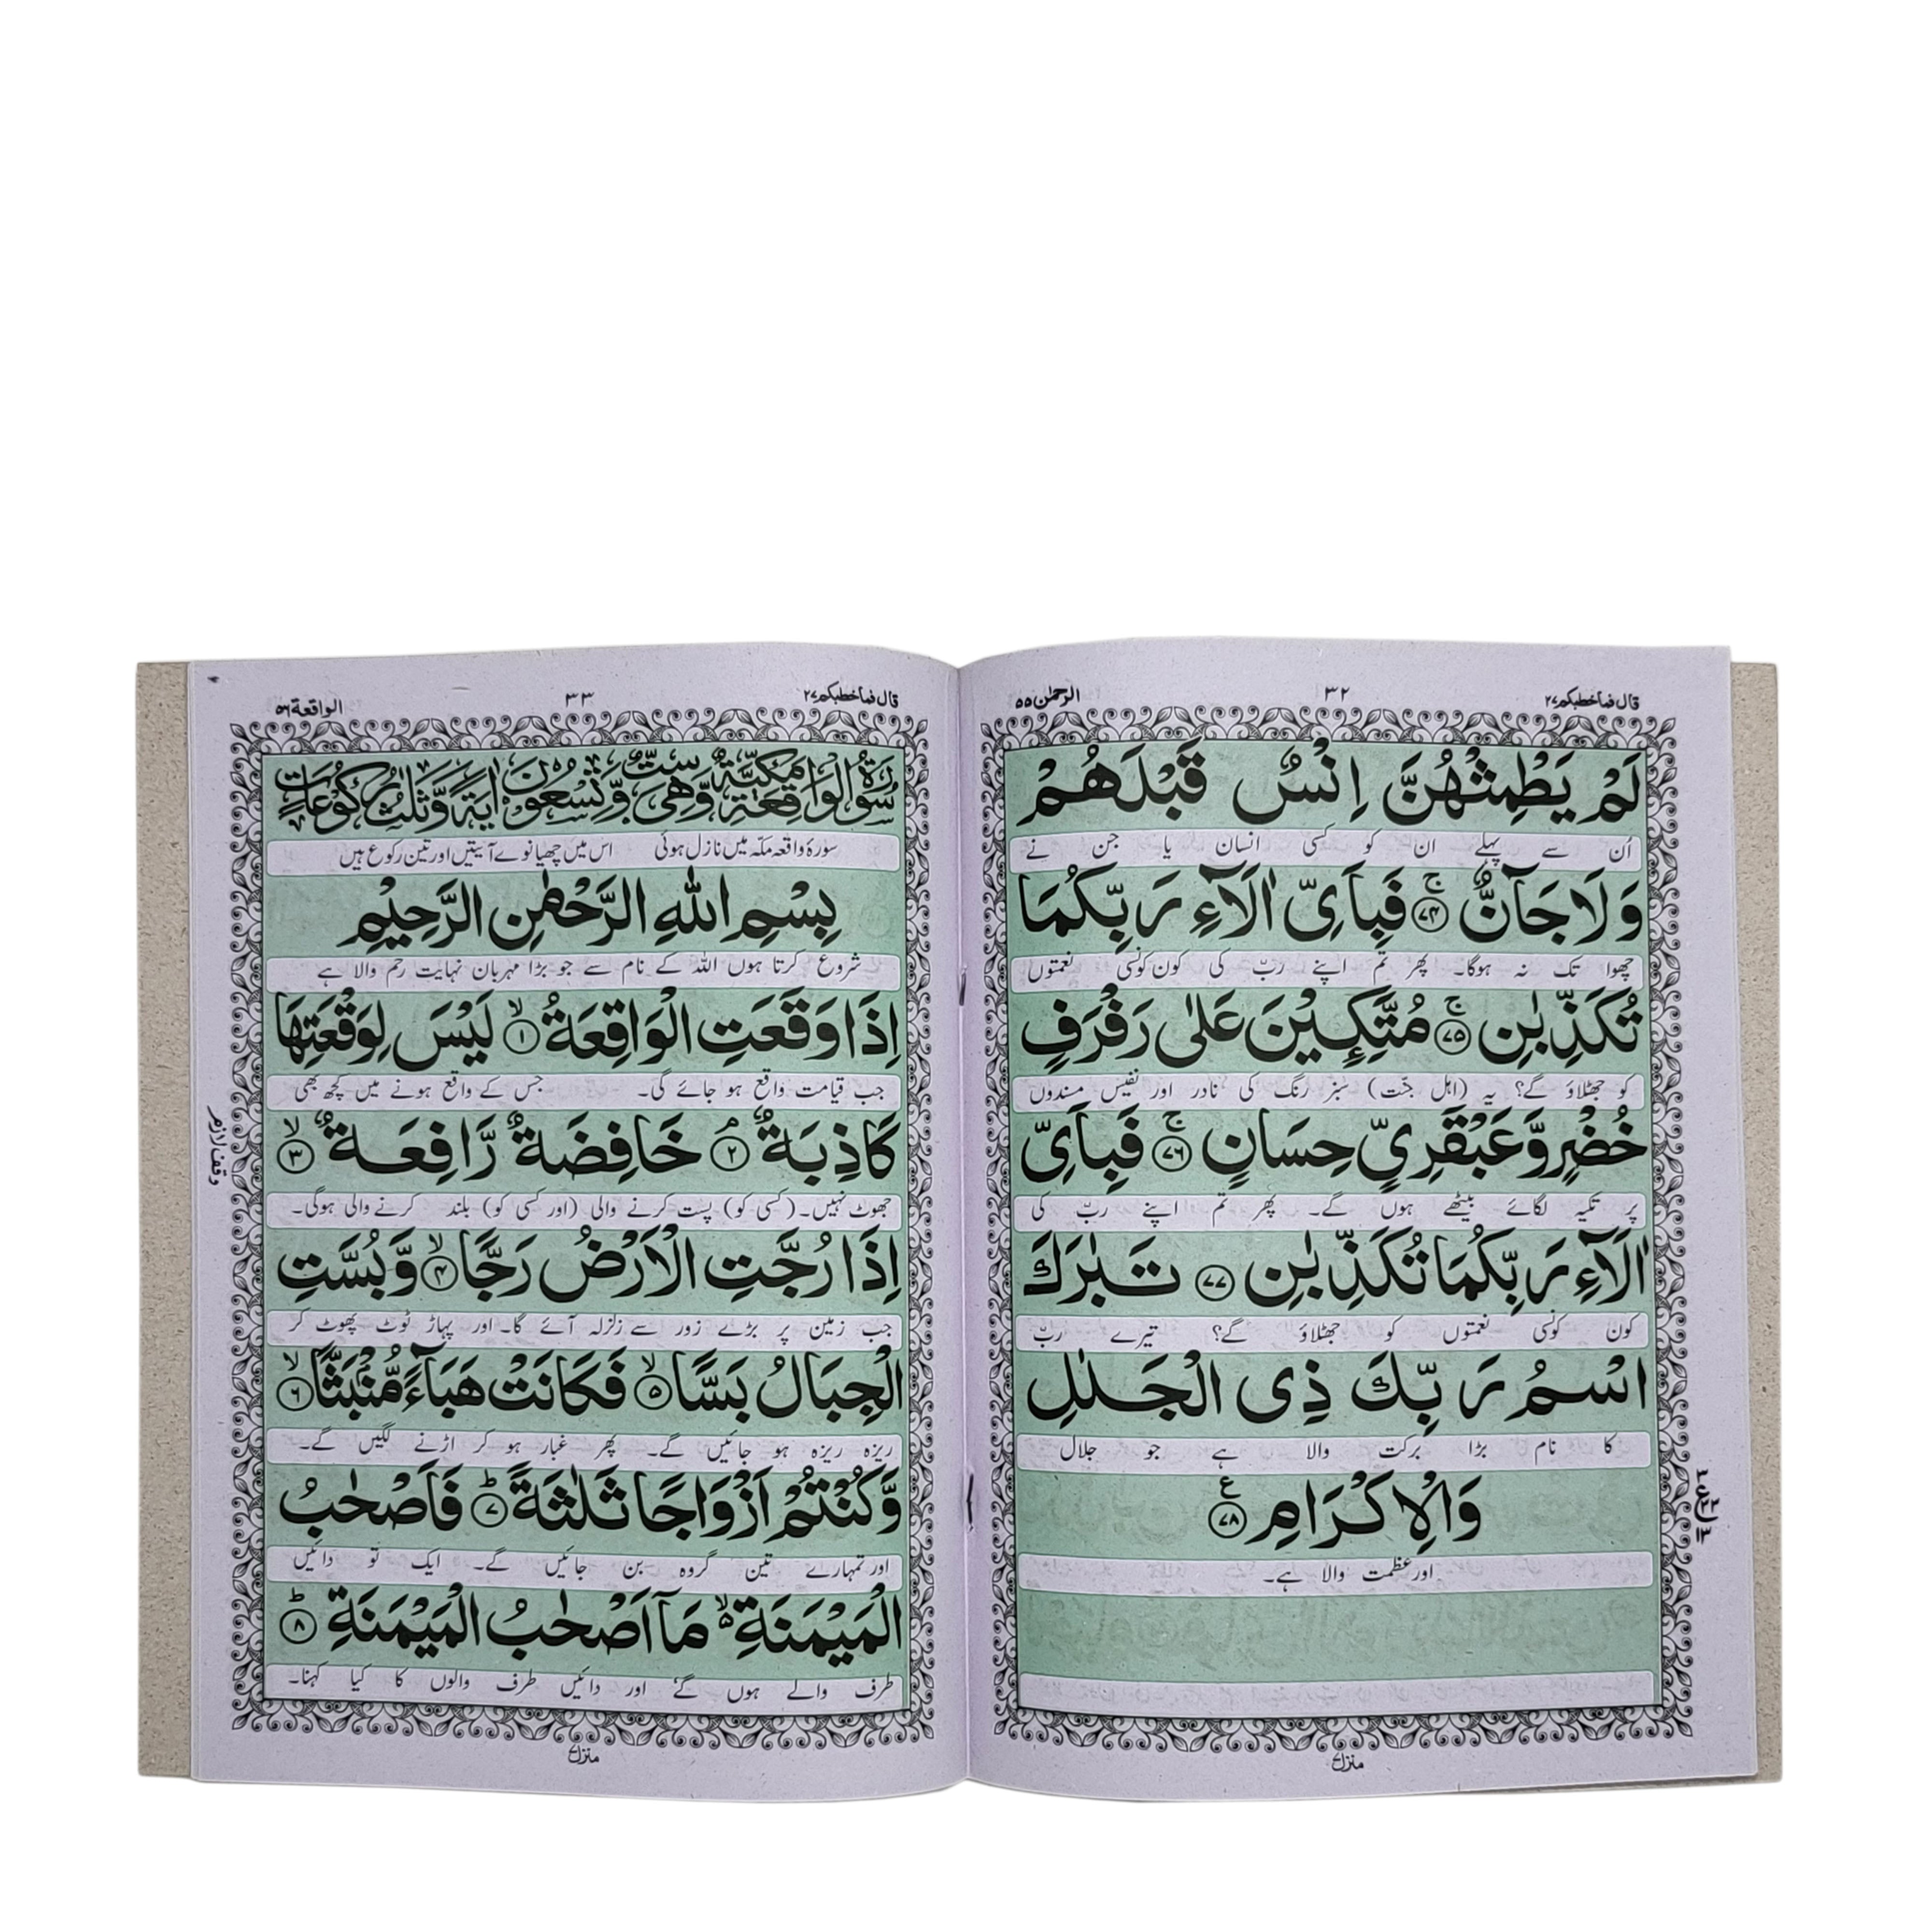 قال فما خطبكم ۲۷
۳۲
الرحمٰن ۵۵
لَمْ يَطْمِثْهُنَّ اِنْسٌ قَبْلَهُمْ
اُن سے پہلے ان کو کسی انسان یا جن نے
وَلَا جَآنٌّ ۚ‏﴿۷۴﴾ فَبِاَىِّ اٰلَآءِ رَبِّكُمَا
چھوا تک نہ ہوگا۔ پھر تم اپنے ربّ کی کون کونسی نعمتوں
تُكَذِّبٰنِ ۚ‏﴿۷۵﴾ مُتَّكِـِٕيْنَ عَلٰى رَفْرَفٍ
کو جھٹلاؤ گے؟ یہ (اہل جنّت) سبز رنگ کی نادر اور نفیس مسندوں
خُضْرٍ وَّعَبْقَرِىٍّ حِسَانٍ ۚ‏﴿۷۶﴾ فَبِاَىِّ
پر تکیہ لگائے بیٹھے ہوں گے۔ پھر تم اپنے ربّ کی
اٰلَآءِ رَبِّكُمَا تُكَذِّبٰنِ ﴿۷۷﴾ تَبٰرَكَ
کون کونسی نعمتوں کو جھٹلاؤ گے؟ تیرے ربّ
اسْمُ رَبِّكَ ذِى الْجَلٰلِ
کا نام بڑا برکت والا ہے جو جلال
وَالْاِكْرَامِ ﴿۷۸﴾ ع
اور عظمت والا ہے۔
منزل ۷
قال فما خطبكم ۲۷
۳۳
الواقعة ۵۶
سُوْرَةُ الْوَاقِعَةِ مَكِّيَّةٌ وَّهِىَ سِتٌّ وَّتِسْعُوْنَ اٰيَةً وَّثَلٰثُ رُكُوْعَاتٍ
سورۂ واقعہ مکّہ میں نازل ہوئی اس میں چھیانوے آیتیں اور تین رکوع ہیں
بِسْمِ اللّٰهِ الرَّحْمٰنِ الرَّحِيْمِ
شروع کرتا ہوں اللہ کے نام سے جو بڑا مہربان نہایت رحم والا ہے
اِذَا وَقَعَتِ الْوَاقِعَةُ ۙ‏﴿۱﴾ لَيْسَ لِوَقْعَتِهَا
جب قیامت واقع ہو جائے گی۔ جس کے واقع ہونے میں کچھ بھی
كَاذِبَةٌ ۘ‏﴿۲﴾ خَافِضَةٌ رَّافِعَةٌ ۙ‏﴿۳﴾
وقف لازم
جھوٹ نہیں۔ (کسی کو) پست کرنے والی (اور کسی کو) بلند کرنے والی ہوگی۔
اِذَا رُجَّتِ الْاَرْضُ رَجًّا ۙ‏﴿۴﴾ وَّبُسَّتِ
جب زمین پر بڑے زور سے زلزلہ آئے گا۔ اور پہاڑ ٹوٹ پھوٹ کر
الْجِبَالُ بَسًّا ۙ‏﴿۵﴾ فَكَانَتْ هَبَآءً مُّنْۢبَثًّا ۙ‏﴿۶﴾
ریزہ ریزہ ہو جائیں گے۔ پھر غبار ہو کر اڑنے لگیں گے۔
وَّكُنْتُمْ اَزْوَاجًا ثَلٰثَةً ؕ‏﴿۷﴾ فَاَصْحٰبُ
اور تمہارے تین گروہ بن جائیں گے۔ ایک تو دائیں
الْمَيْمَنَةِ ۙ۬ مَآ اَصْحٰبُ الْمَيْمَنَةِ ؕ‏﴿۸﴾
طرف والے ہوں گے اور دائیں طرف والوں کا کیا کہنا۔
منزل ۷